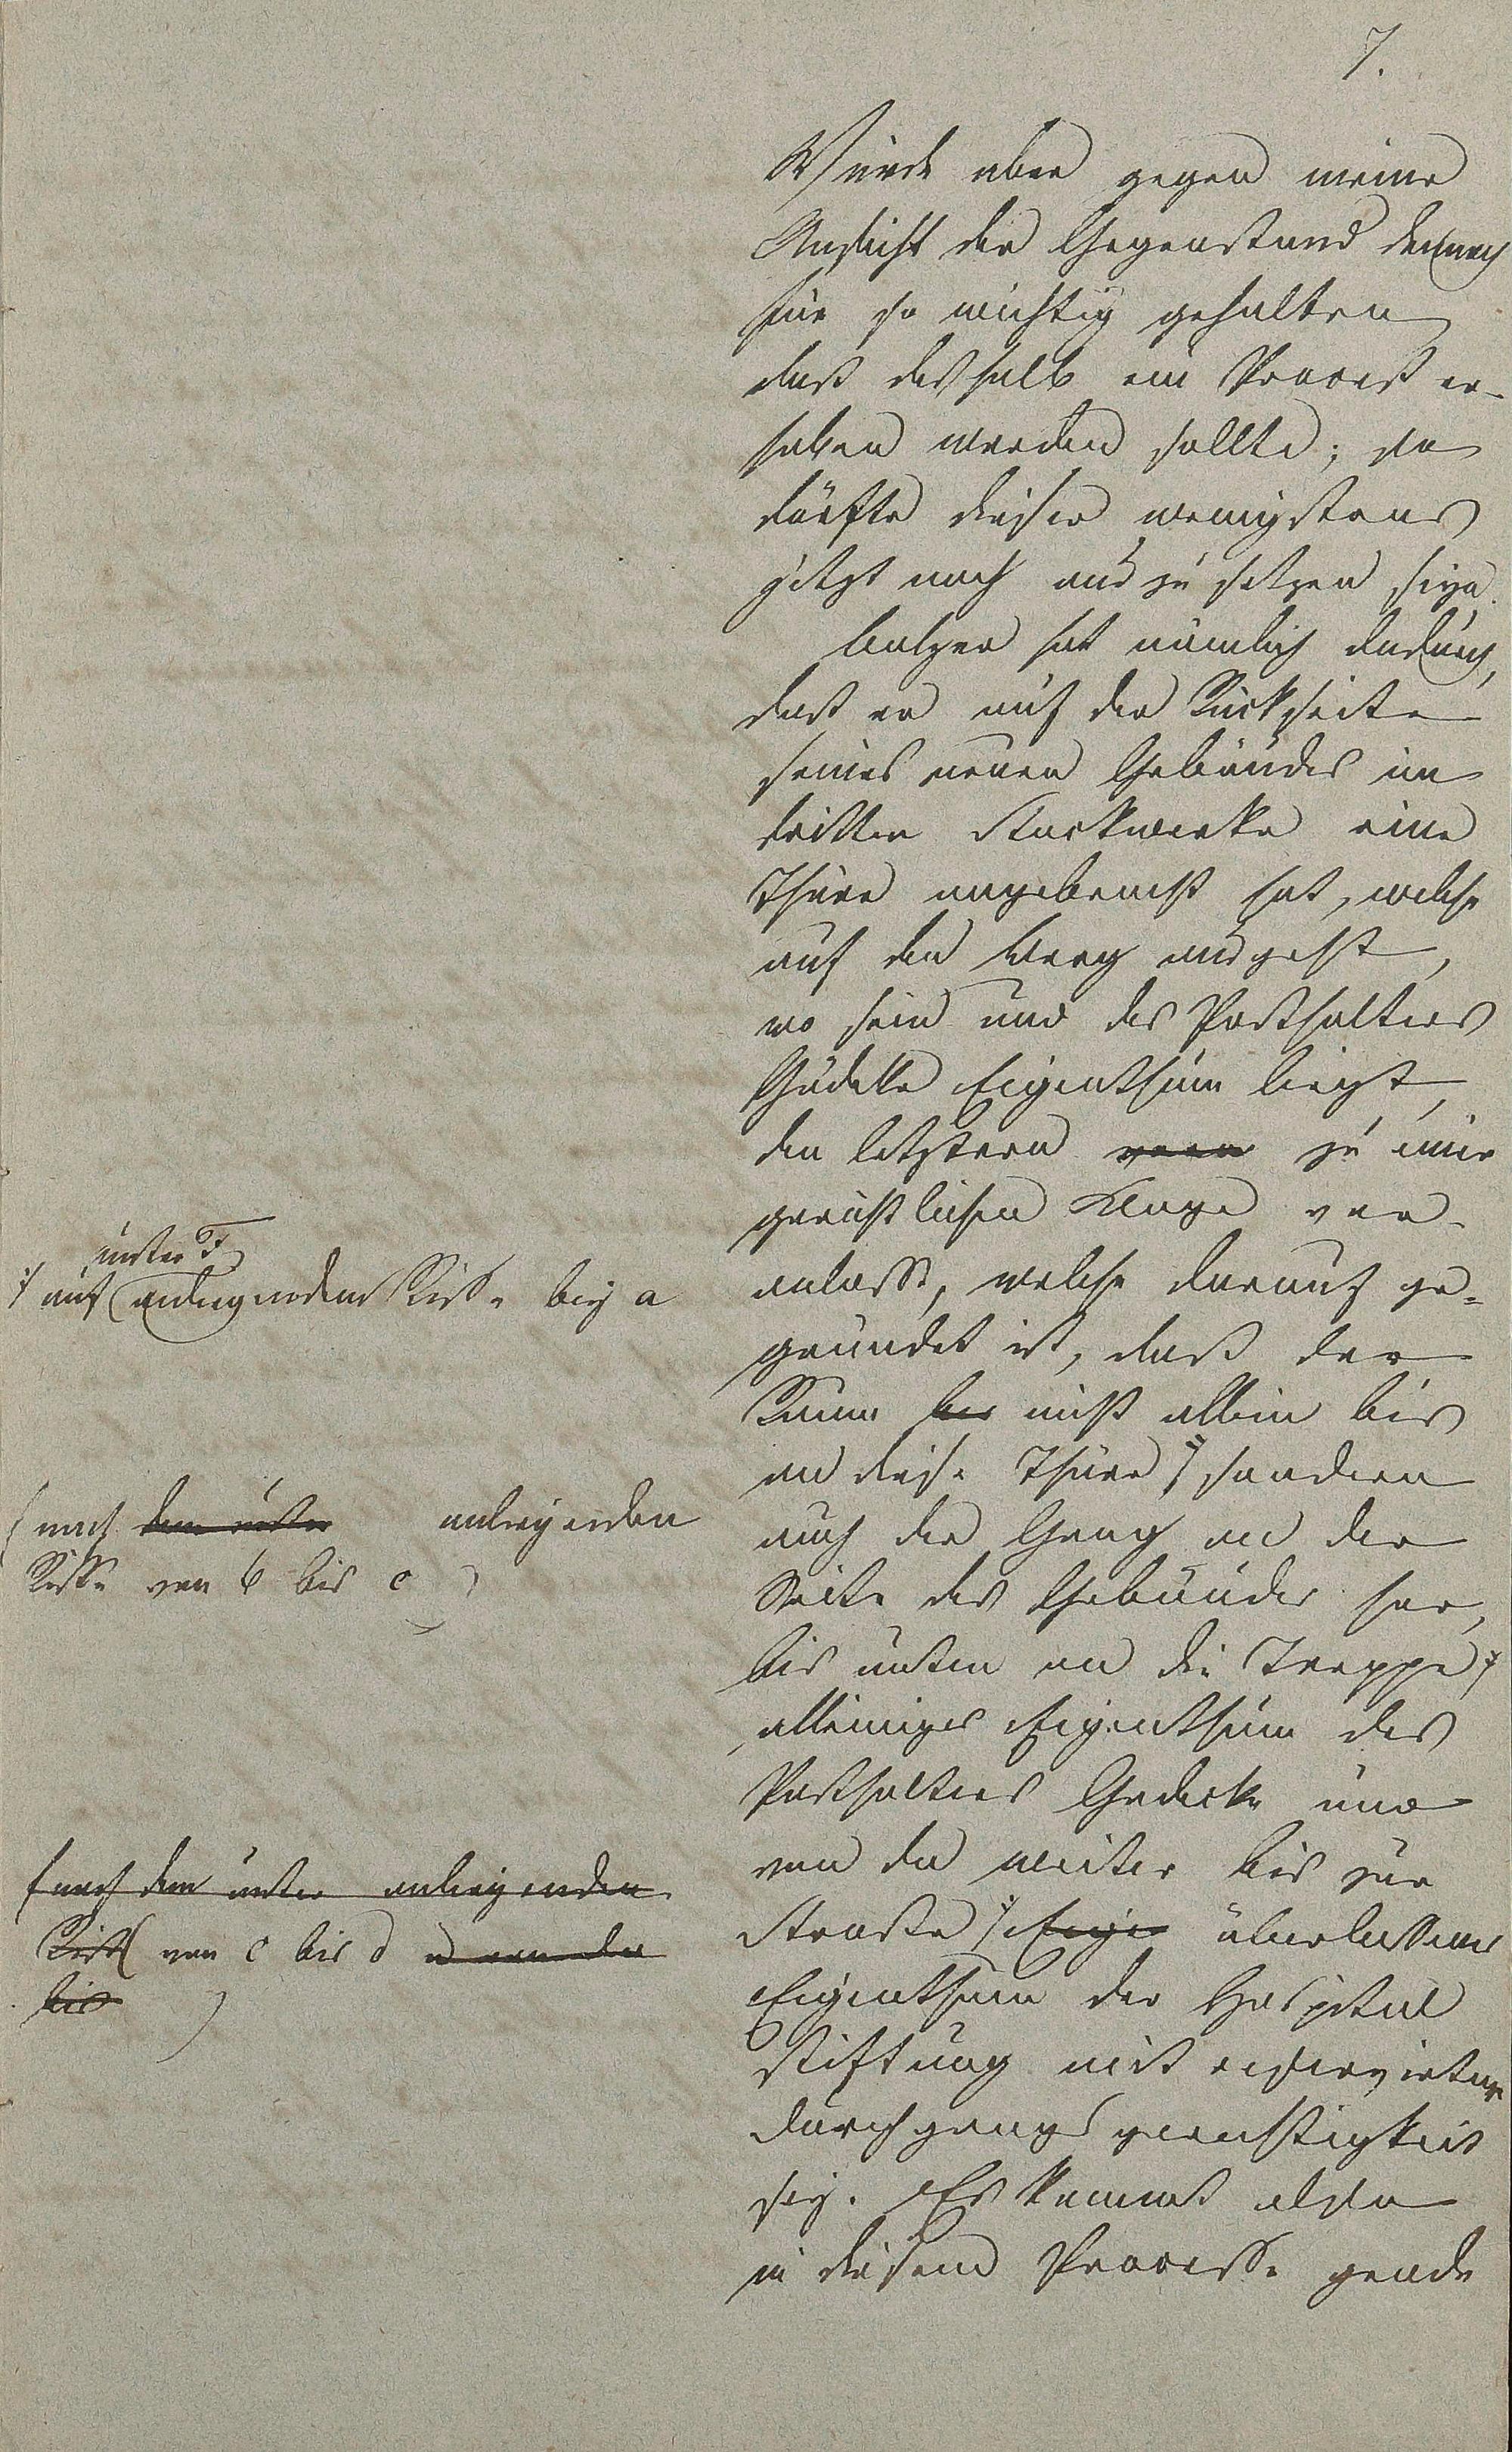 7.
Würde aber gegen meine
Ansicht der Gegenstand dennoch
für so wichtig gehalten
daß deshalb ein Proceß er-
hoben werden sollte; so
dürfte dieser wenigstens
jetzt noch aus zu setzen seyn.
Balzer hat nämlich dadurch,
daß er auf der Rückseite
seines neuen Gebäudes im
dritten Stockwerke eine
Thüre angebracht hat, welche
auf den Berg ausgeht,
wo sein und des Posthalters
Eigenthum liegt,
den letztern zu einer
gerichtlichen Klage ver-
anlaßt, welche darauf ge-
gründet ist, daß der
Raum bis nicht allein bis
an diese Thüre sondern
auch der Gang an der
Seite des Gebäudes her,
bis unten an die Treppe
alleiniges Eigenthum des
Posthalters Gedecke und
von da weiter bis zur
Straße Eige überlassenes
Eigenthum der Hospital
stiftung mit reservirter
Durchgangsgerechtigkeit
sey. Es kommt also
in diesem Processe gerade
unter F
auf anliegendem Risse bey a
(nach dem unter anliegenden
Risse von b bis c)
(nach dem unter anliegenden
Riss von c bis d u von da
bis)